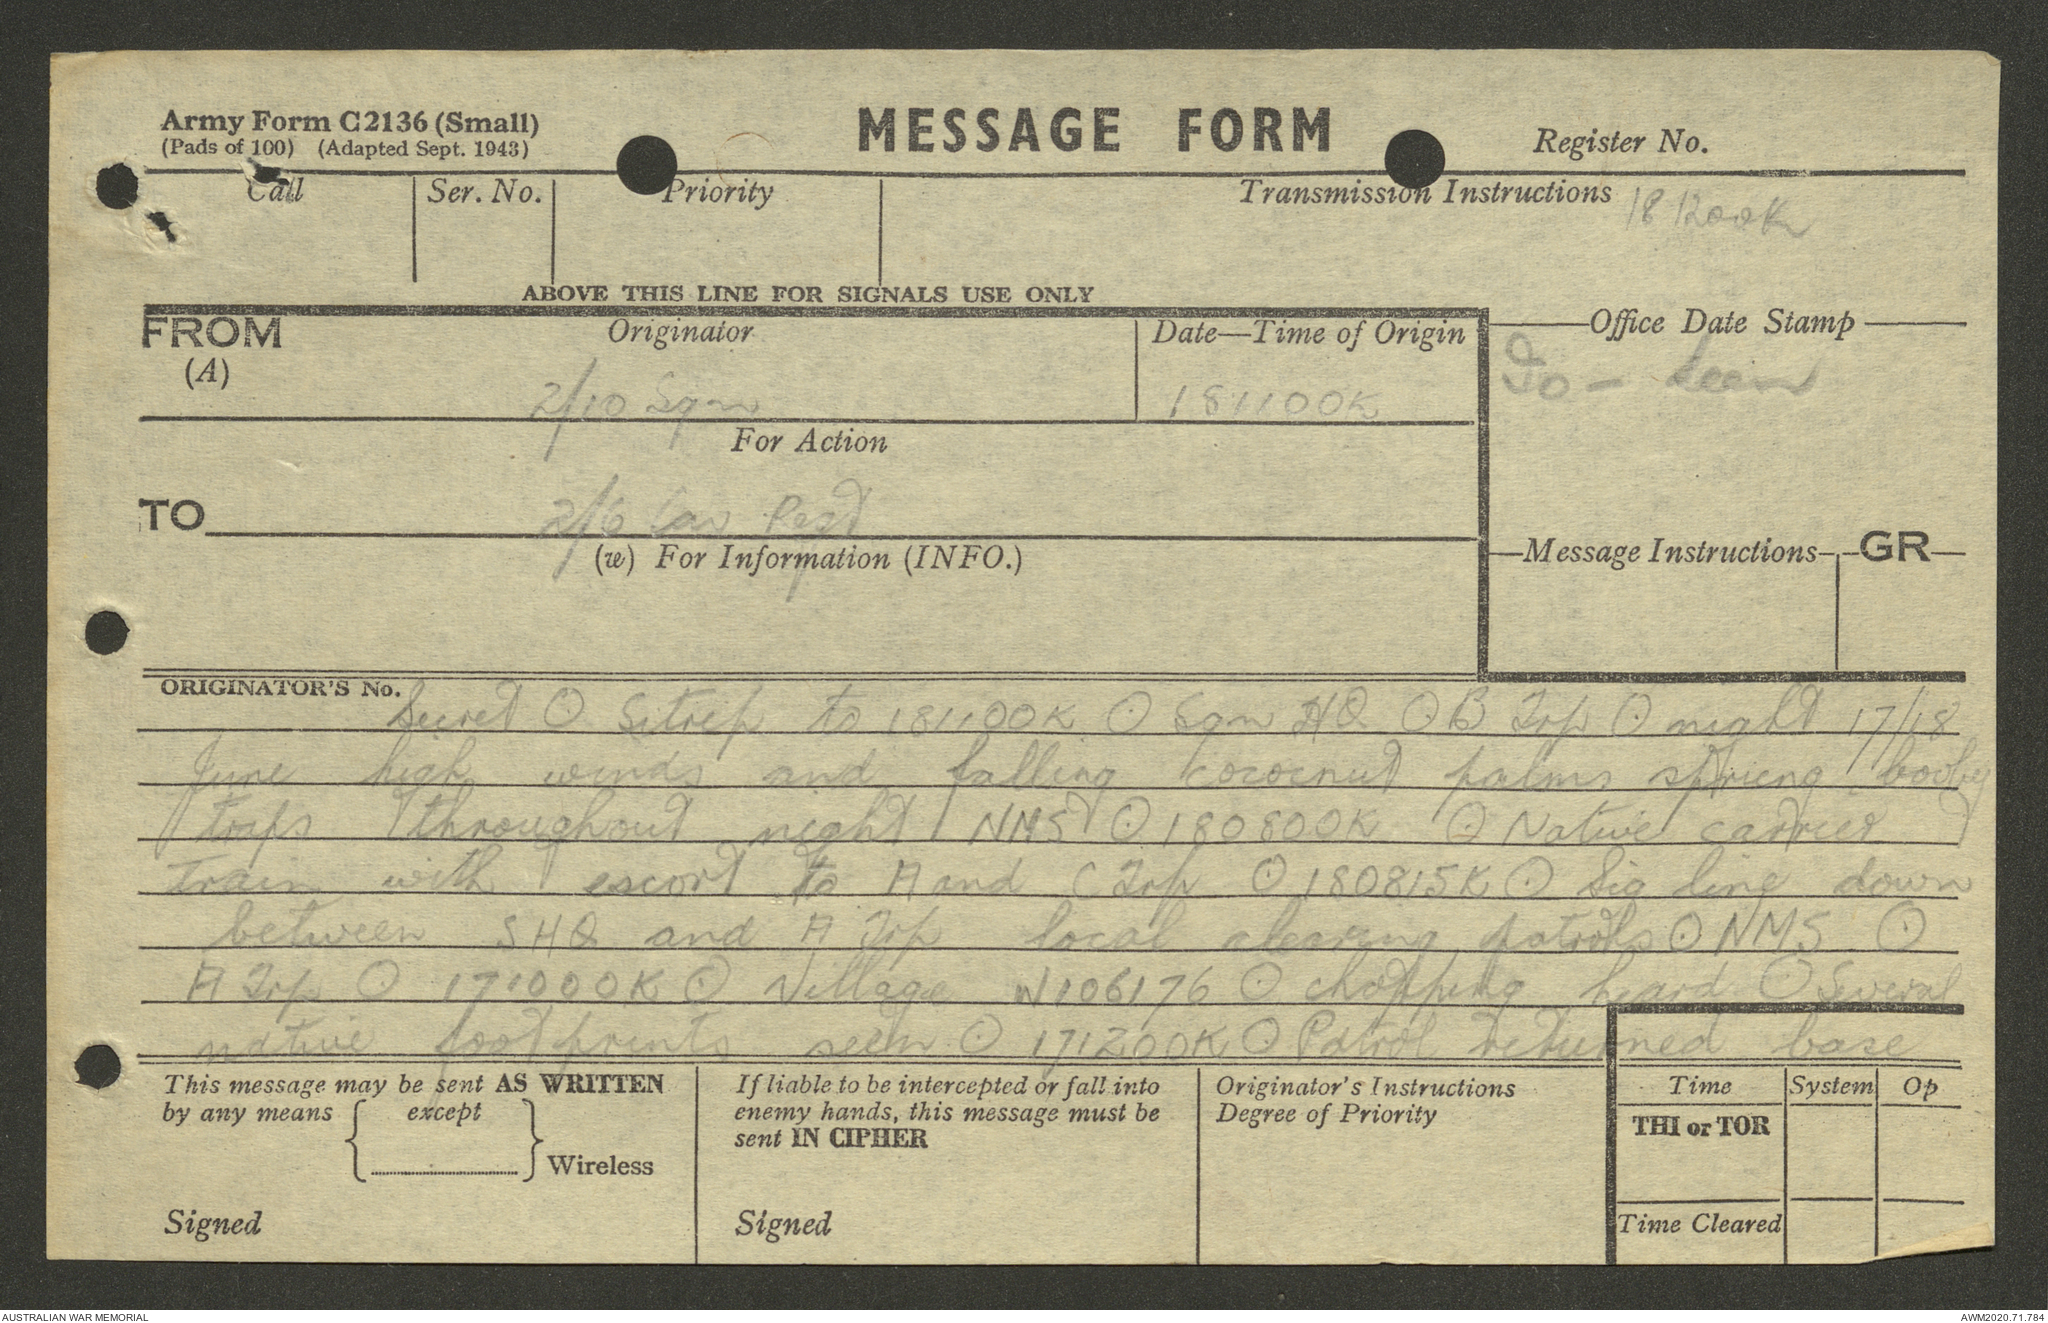 Army Form C2136 (Small)
(Pads of 100) (Adapted Sept. 1943)
MESSAGE FORM
Register No.
Call
Ser. No.
Priority
Transmission Instructions
18 1200K
ABOVE THIS LINE FOR SIGNALS USE ONLY
FROM
(A)
Originator
2/10 Sqn
Date—Time of Origin
181100K
Office Date Stamp
IO - Seen
For Action
TO
2/6 Cav Regt
(w) For Information (INFO.)
Message Instructions
GR
ORIGINATOR'S No.
Secret O Sitrep to 181100K O Sqn HQ O B Trp O night 17/18
June high winds and falling cocoenut palms sprung booby
traps throughout night NMS O 180800K O Native carrier
train with escort to A and C Trp O 180815K O Sig line down
between SHQ and A Trp local clearing patrols O NMS O
A Trp O 171000K O Village N106176 O chopping heard O Several
native footprints seen O 171200K O Patrol returned base
This message may be sent AS WRITTEN
by any means { except } Wireless
Signed
If liable to be intercepted or fall into
enemy hands, this message must be
sent IN CIPHER
Signed
Originator's Instructions
Degree of Priority
Time
System
Op
THI or TOR
Time Cleared
AUSTRALIAN WAR MEMORIAL
AWM2020.71.784